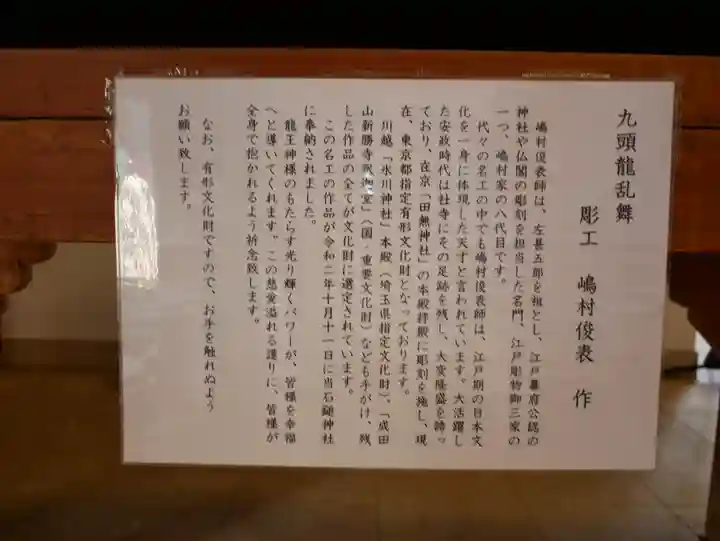 九頭龍乱舞
彫工 嶋村俊表 作
嶋村俊表師は、左甚五郎を祖とし、江戸幕府公認の
神社や仏閣の彫刻を担当した名門、江戸彫物御三家の
一つ、嶋村家の八代目です。
代々の名工の中でも嶋村俊表師は、江戸期の日本文
化を一身に体現した天才と言われています。大活躍し
た安政時代は社寺にその足跡を残し、大変隆盛を誇っ
ており、在京「田無神社」の本殿拝殿に彫刻を施し、現
在、東京都指定有形文化財となっております。
川越「氷川神社」本殿（埼玉県指定文化財）、「成田
山新勝寺釈迦堂」（国・重要文化財）なども手がけ、残
した作品の全てが文化財に選定されています。
この名工の作品が令和二年十月十一日に当石鎚神社
に奉納されました。
龍王神様のもたらす光り輝くパワーが、皆様を幸福
へと導いてくれます。この慈愛溢れる護りに、皆様が
全身で抱かれるよう祈念致します。
なお、有形文化財ですので、お手を触れぬよう
お願い致します。